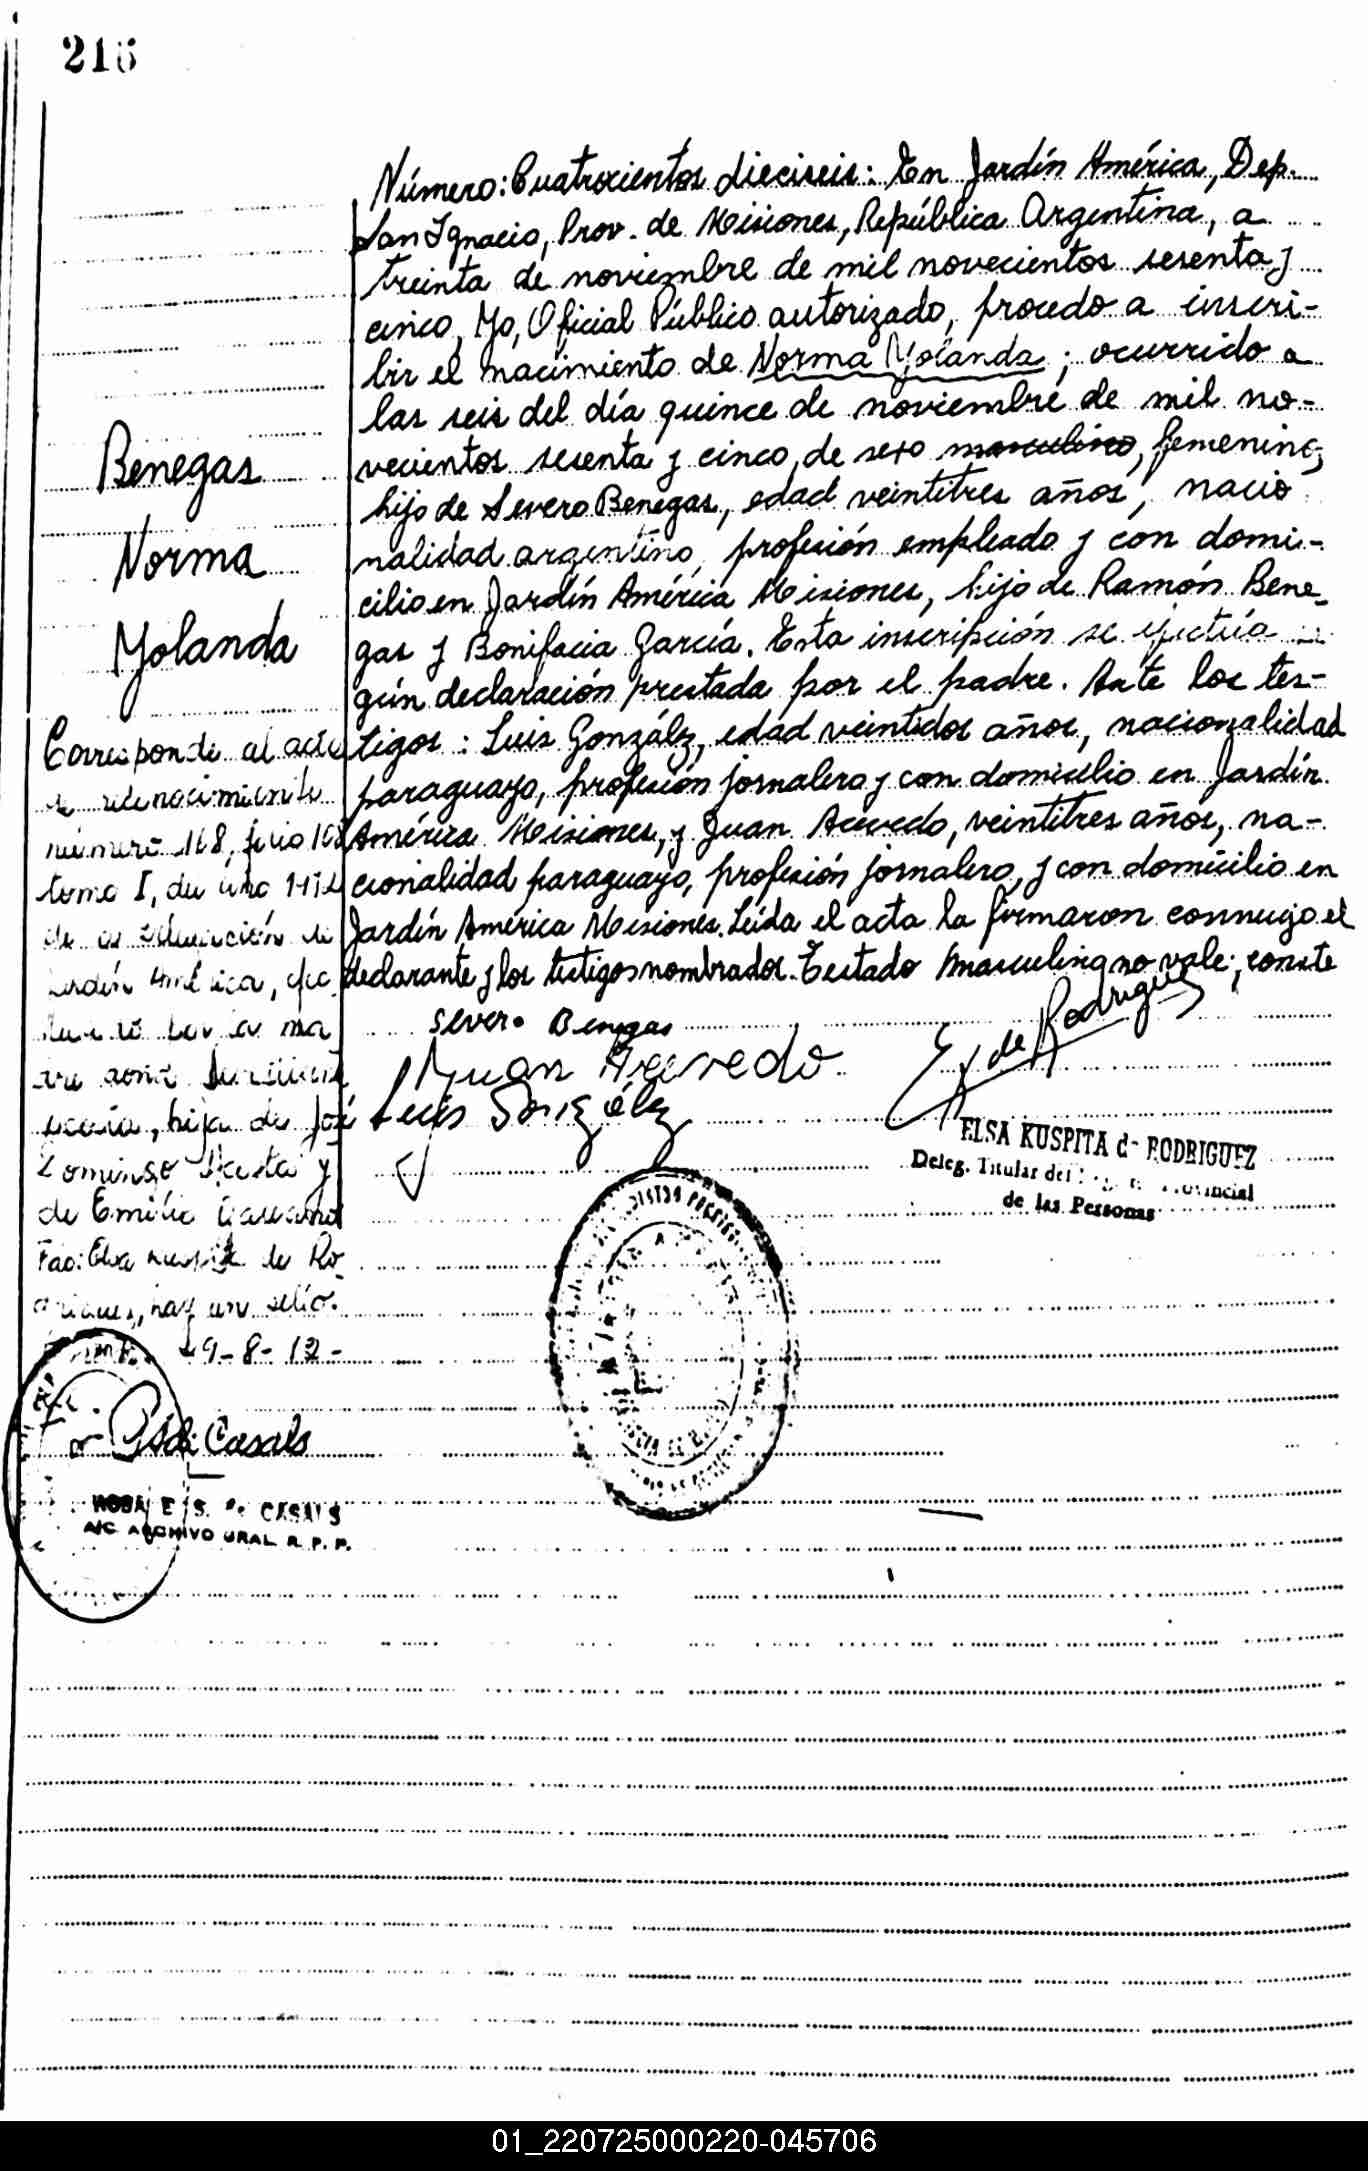 216
Número: Cuatrocientos dieciseis: En Jardín América, Dep.
San Ignacio, Prov. de Misiones, República Argentina, a
treinta de noviembre de mil novecientos sesenta y
cinco, Yo, Oficial Público autorizado, procedo a inscri-
bir el nacimiento de Norma Yolanda; ocurrido a
las seis del día quince de noviembre de mil no-
vecientos sesenta y cinco, de sexo masculino, femenino,
hijo de Severo Benegas, edad veintitres años, nacio
nalidad argentino, profesión empleado y con domi-
cilio en Jardín América Misiones, hijo de Ramón Bene-
gas y Bonifacia García. Esta inscripción se efectúa
gún declaración prestada por el padre. Ante los tes-
tigos: Luis González, edad veintidos años, nacionalidad
paraguayo, profesión jornalero y con domicilio en Jardín
América Misiones, y Juan Acevedo, veintitres años, na-
cionalidad paraguayo, profesión jornalero, y con domicilio en
Jardín América Misiones. Leída el acta la firmaron conmigo el
declarante y los testigos nombrados. Testado masculino no vale; conste
Severo Benegas
Juan Acevedo
Luis González
E K de Rodriguez
ELSA KUSPITA de RODRIGUEZ
Deleg. Titular del Provincial
de las Personas
Benegas
Norma
Yolanda
Corresponde al acta
de reconocimiento
número 168, folio
tomo I, del año
de la delegación de
Jardín América, efec
por la ma
dre doña
hija de José
Domingo Acosta y
de Emilia
Fdo: Elsa Kuspita de Ro
driguez, hay un sello.
9-8-12-
de Casals
ROSA E. S. de CASALS
A/C ARCHIVO GRAL R. P. P.
01_220725000220-045706